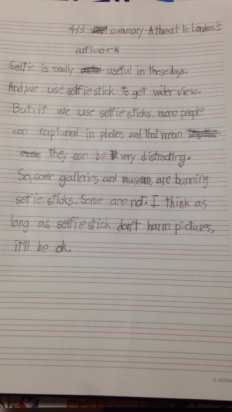 4/3 summary A threat to London's
artwork
Selfie is really useful in these days.
And we use selfiestick to get wider view.
But if we use selfiesticks, more people
can captured in photos and that mean
they can be very distracting.
So, some galleries and museum are banning
selfie sticks. Some are not. I think as
long as selfiestick don't harm pictures,
it'll be ok.